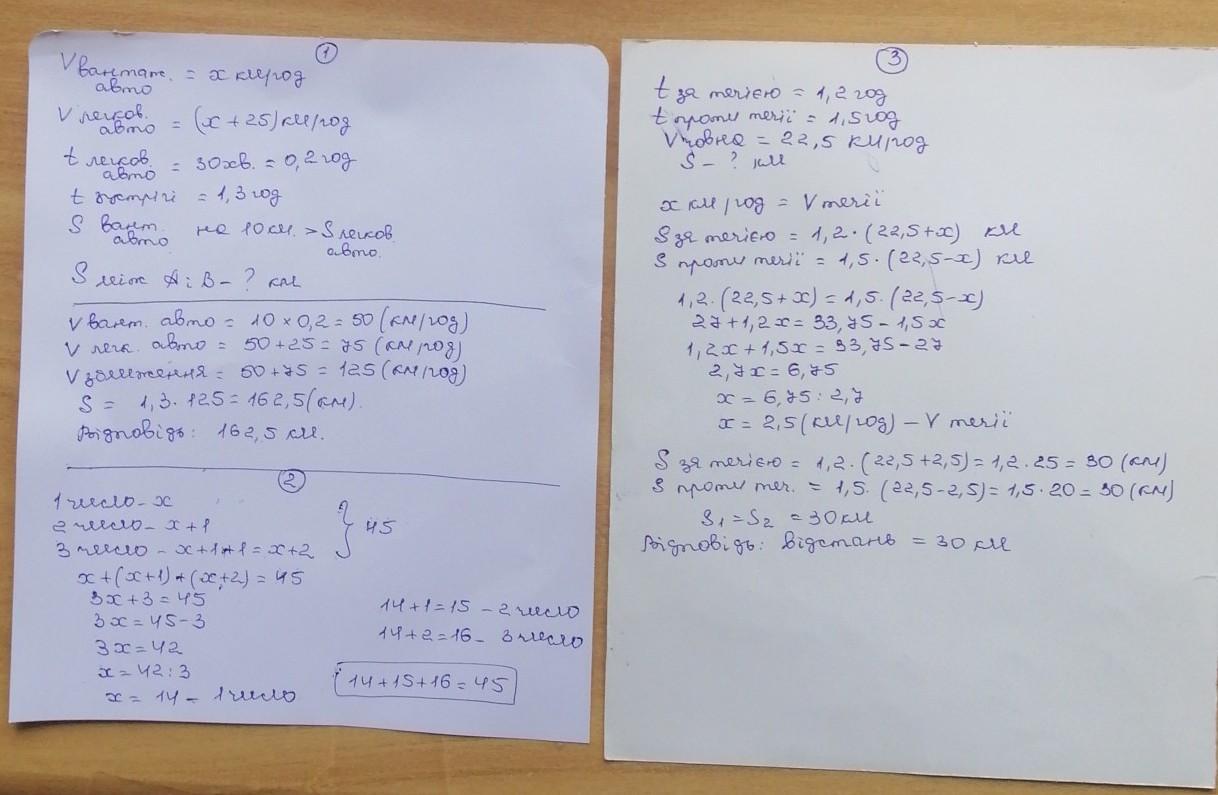 1
V вантаж. авто = x км/год
V легков. авто = (x + 25) км/год
t легков. авто = 30хв. = 0,2 год
t зустрічі = 1,3 год
S вант. авто на 10 км. > S легков. авто.
S між A і B - ? км
V вант. авто = 10 × 0,2 = 50 (км/год)
V легк. авто = 50 + 25 = 75 (км/год)
V зближення = 50 + 75 = 125 (км/год)
S = 1,3 · 125 = 162,5 (км).
Відповідь: 162,5 км.
2
1 число - x
2 число - x + 1
3 число - x + 1 + 1 = x + 2
} 45
x + (x + 1) + (x + 2) = 45
3x + 3 = 45
3x = 45 - 3
3x = 42
x = 42 : 3
x = 14 - 1 число
14 + 1 = 15 - 2 число
14 + 2 = 16 - 3 число
14 + 15 + 16 = 45
3
t за течією = 1,2 год
t проти течії = 1,5 год
V човна = 22,5 км/год
S - ? км
x км/год = V течії
S за течією = 1,2 · (22,5 + x) км
S проти течії = 1,5 · (22,5 - x) км
1,2 · (22,5 + x) = 1,5 · (22,5 - x)
27 + 1,2x = 33,75 - 1,5x
1,2x + 1,5x = 33,75 - 27
2,7x = 6,75
x = 6,75 : 2,7
x = 2,5 (км/год) - V течії
S за течією = 1,2 · (22,5 + 2,5) = 1,2 · 25 = 30 (км)
S проти теч. = 1,5 · (22,5 - 2,5) = 1,5 · 20 = 30 (км)
S₁ = S₂ = 30 км
Відповідь: відстань = 30 км